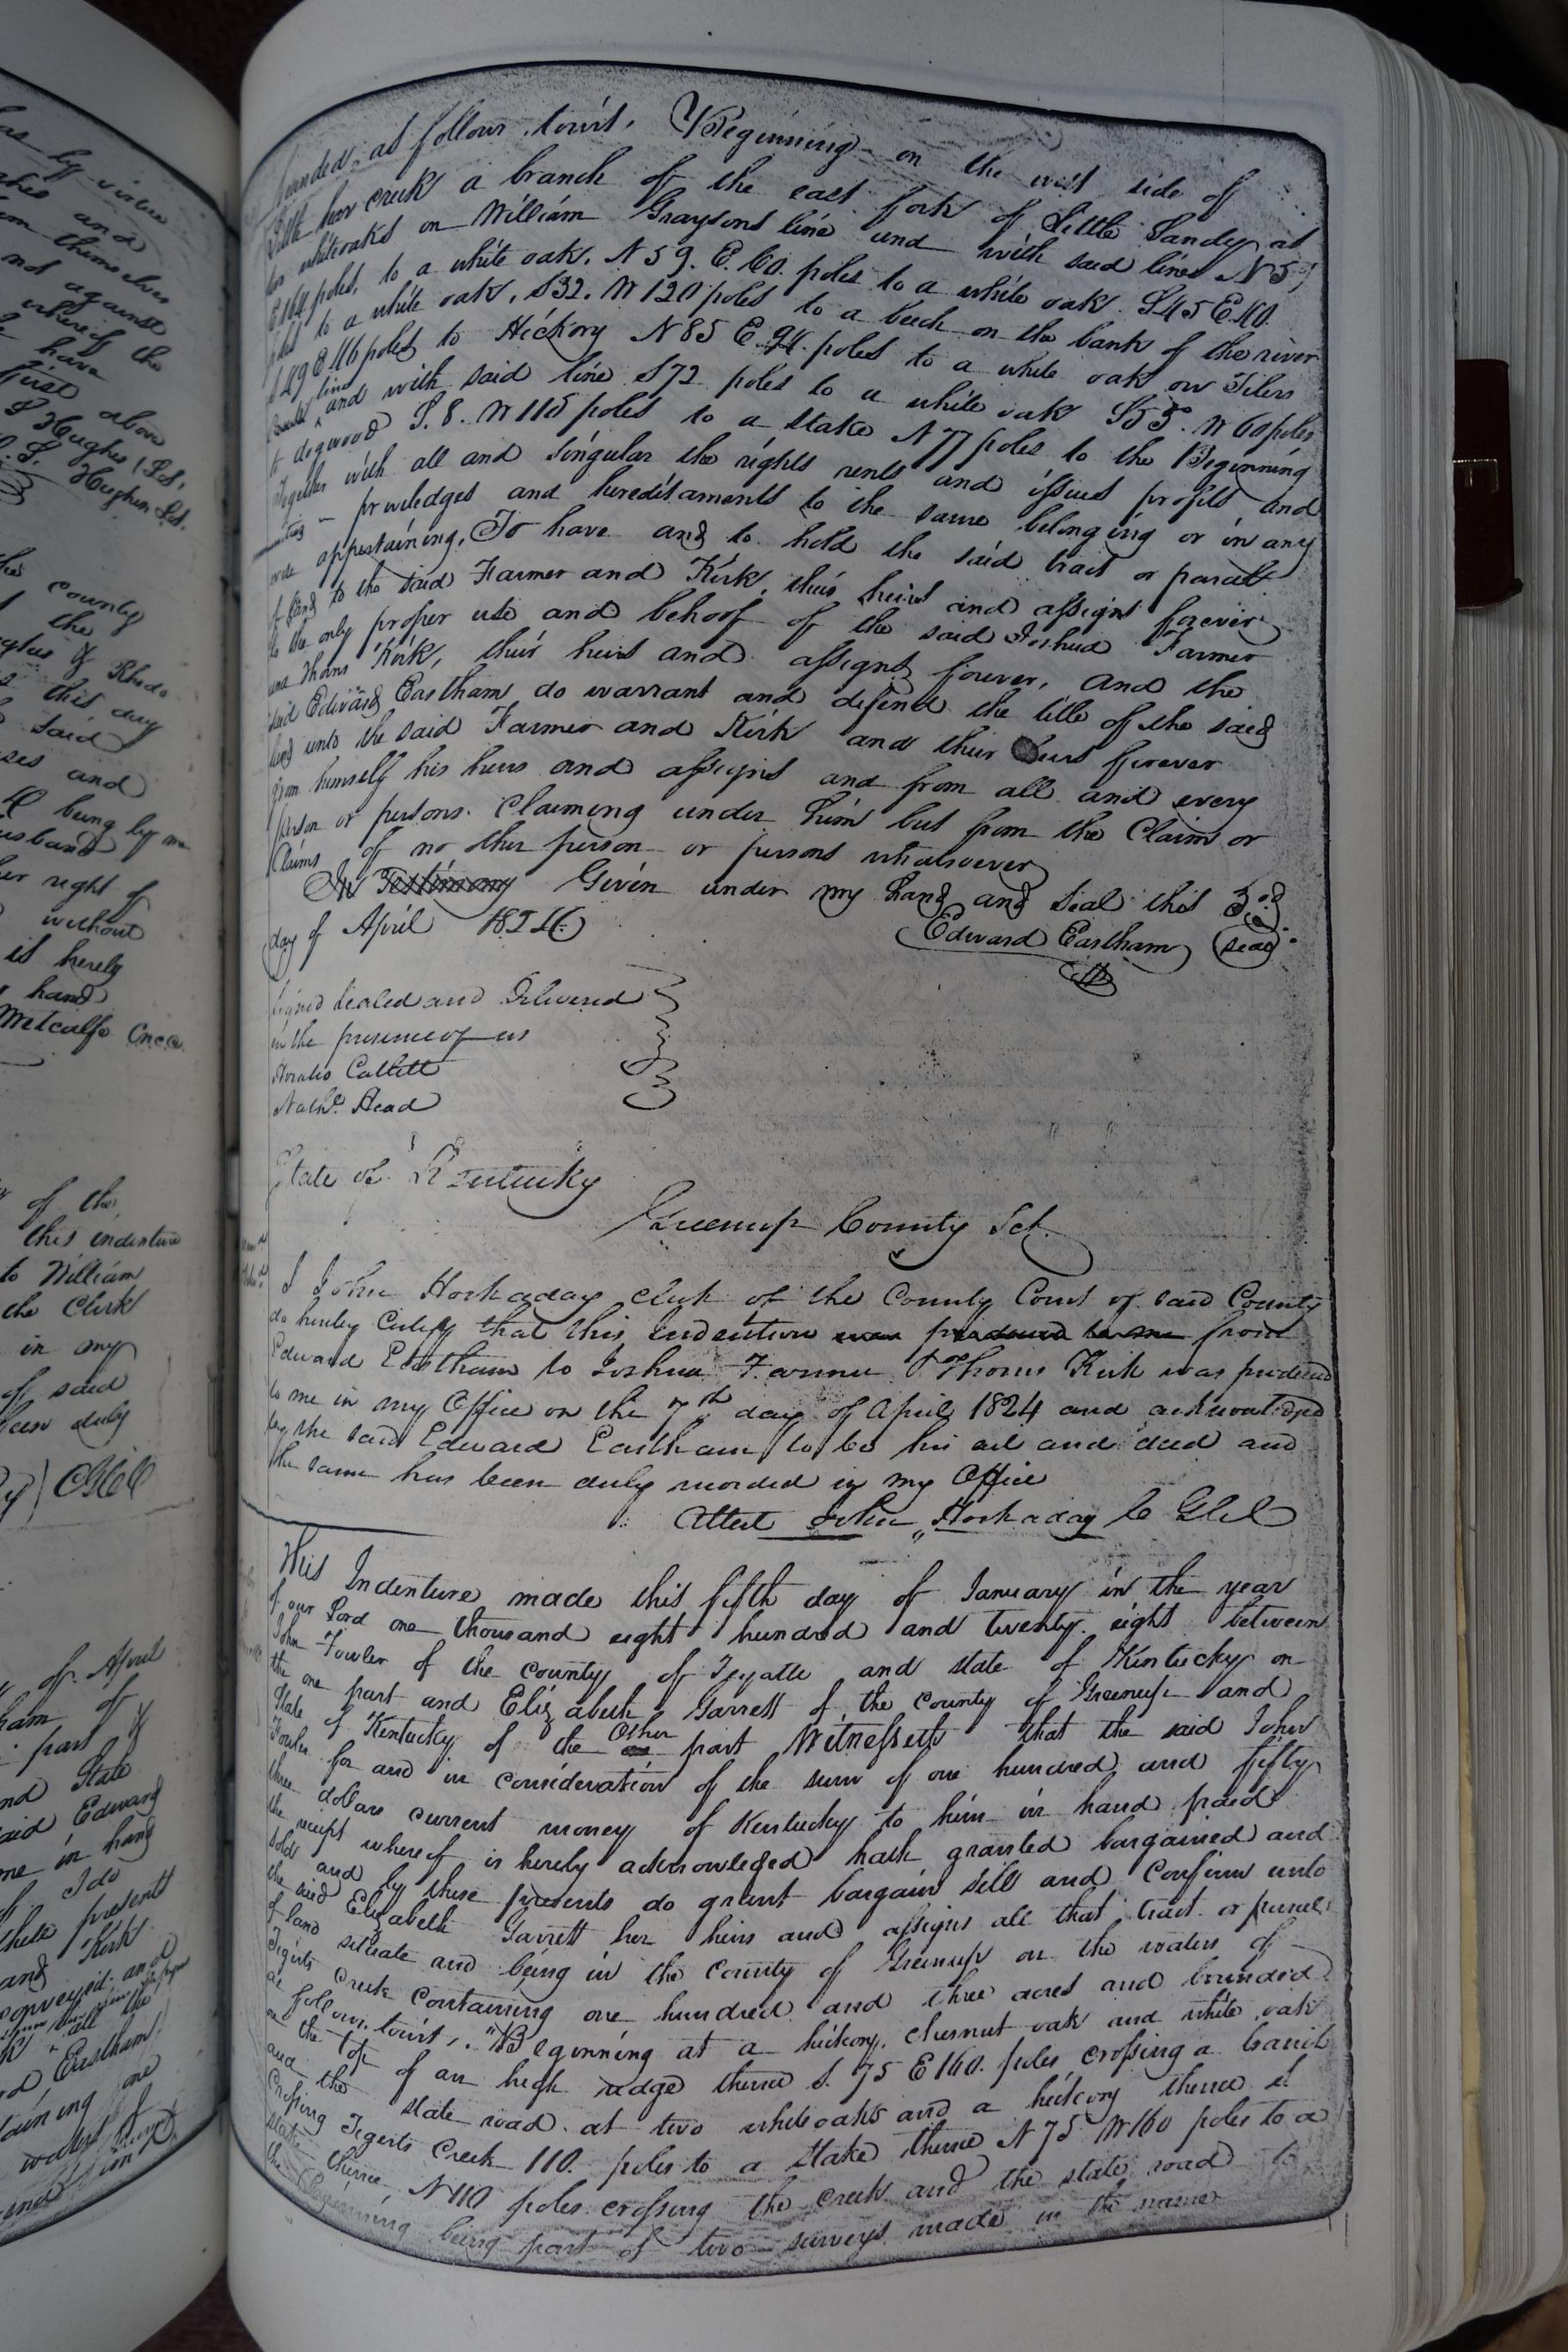 as by virtue
and
them themselves
not against
whereof the
have
first above
Hughes L.S.
Hughes L.S.
the County
the
of Rhoda
this day
said
and
being by me
husband
her right of
without
is herely
hand
Metcalfe
of the
this indenture
to William
the Clerk
in my
of said
been duly
of April
of
part of
and State
said Edward
in hand
I do
these presents
and Kirk
conveyed and
all the
Eastham
one
waters of
bounded as follows, towit, Beginning on the west side of
Little creek a branch of the east fork of Little Sandy at
two whiteoaks on William Graysons line and with said line N 57
E 164 poles, to a white oak, N 59. E. 60. poles to a white oak S45 E 40.
poles to a white oak, S32. W 120 poles to a beech on the bank of the river
S 49 E 116 poles to Hickory N 85 E. 94. poles to a white oak on
line and with said line S 72 poles to a white oak S 55. W 60 poles
to dogwood S. 8. W 115 poles to a stake N 77 poles to the Beginning
Together with all and singular the rights rents and issues profits and
priviledges and hereditaments to the same belonging or in any
wise appertaining, To have and to hold the said tract or parcel
of land to the said Farmer and Kirk, their heirs and assigns forever
to the only proper use and behoof of the said Joshua Farmer
and Thoms Kirk, their heirs and assigns forever, and the
said Edward Eastham do warrant and defend the title of the said
land unto the said Farmer and Kirk and their heirs forever
from himself his heirs and assigns and from all and every
person or persons Claiming under him but from the Claim or
Claims of no other person or persons whatsoever
In Testimony Given under my hand and seal this 3rd
day of April
Edward Eastham (seal)
Signed Sealed and Delivered
in the presence of us
Horatio Catlett
Nathl. Head
State of Kentucky
Greenup County Sct.
I John Hockaday clerk of the County Court of said County
do hereby Certify that this Indenture was produced to me from
Edward Eastham to Joshua Farmer & Thoms Kirk was produced
to me in my Office on the 7th day of April 1824 and acknowledged
by the said Edward Eastham to be his act and deed and
the same has been duly recorded in my Office
Attest John Hockaday
This Indenture made this fifth day of January in the year
of our Lord one thousand eight hundred and twenty eight between
John Fowler of the county of Feyatte and state of Kentucky on
the one part and Elizabeth Garrett of the county of Greenup and
State of Kentucky of the other part Witnesseth that the said John
Fowler for and in consideration of the sum of one hundred and fifty
three dollars current money of Kentucky to him in hand paid
the receipt whereof is herely acknowledged hath granted bargained and
sold and by these presents do grant bargain sell and Confirm unto
the said Elizabeth Garrett her heirs and assigns all that tract or parcel
of land situate and being in the county of Greenup on the waters of
Tigerts Creek containing one hundred and three acres and bounded
as follows, towit, "Beginning at a hickory, Chesnut oak and white oak
on the top of an high ridge thence S. 75 E 160. poles crossing a branch
and the state road at two whiteoaks and a hickory thence S
Crossing Tigerts Creek 110. poles to a stake thence N 75 W 160 poles to a
stake thence N 110 poles crossing the creek and the state road to
the Beginning being part of two surveys made in the name